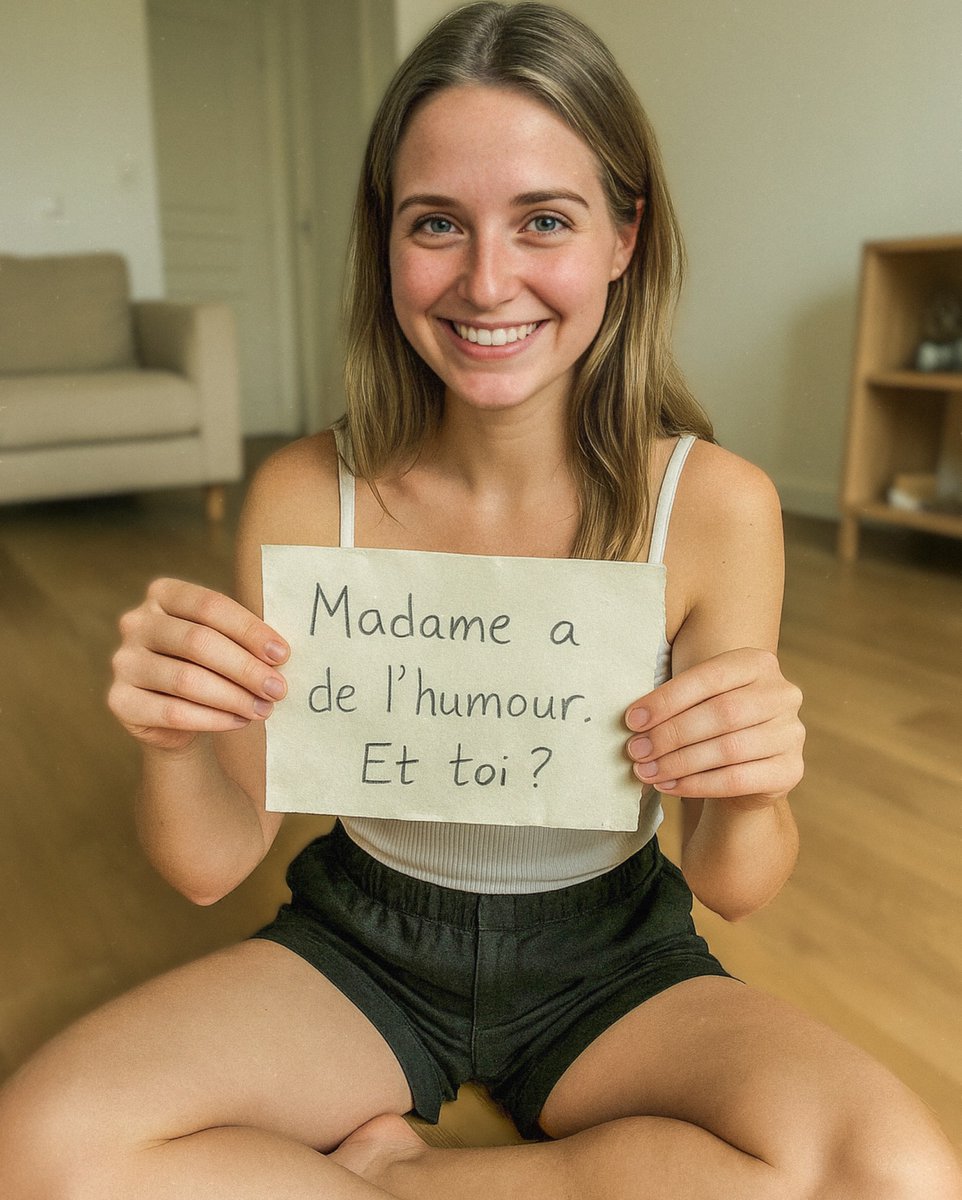 Madame a
de l'humour.
Et toi ?